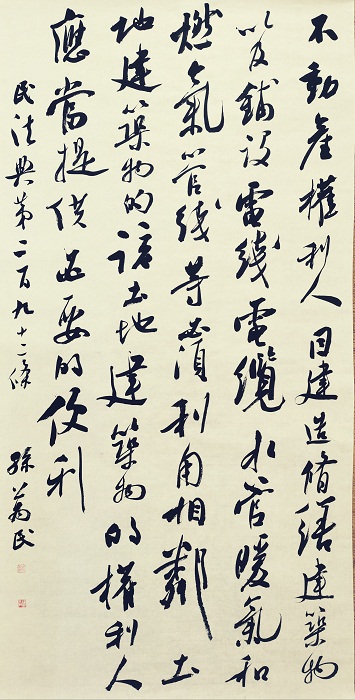 不動產權利人因建造修繕建築物
以及鋪设電线電纜水管暖氣和
燃氣管线等必須利用相鄰土
地建築物的該土地建築物的權利人
應當提供必要的便利
民法典第二百九十二條
孫萬民